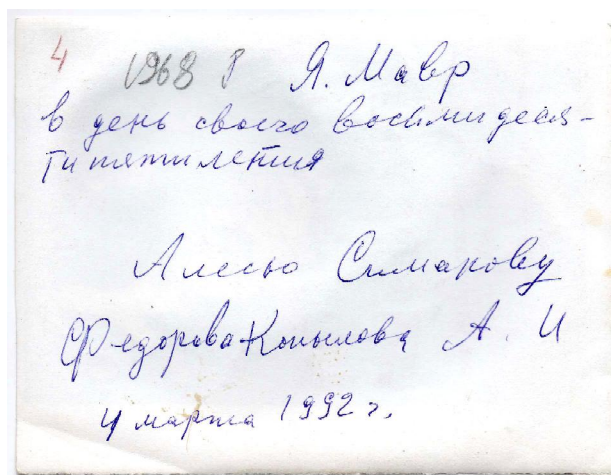 4 1968 г Я. Мавр
в день своего восьмидеся-
типятилетия
Алесю Симакову
Федорова Копылова А. И
4 марта 1992 г.